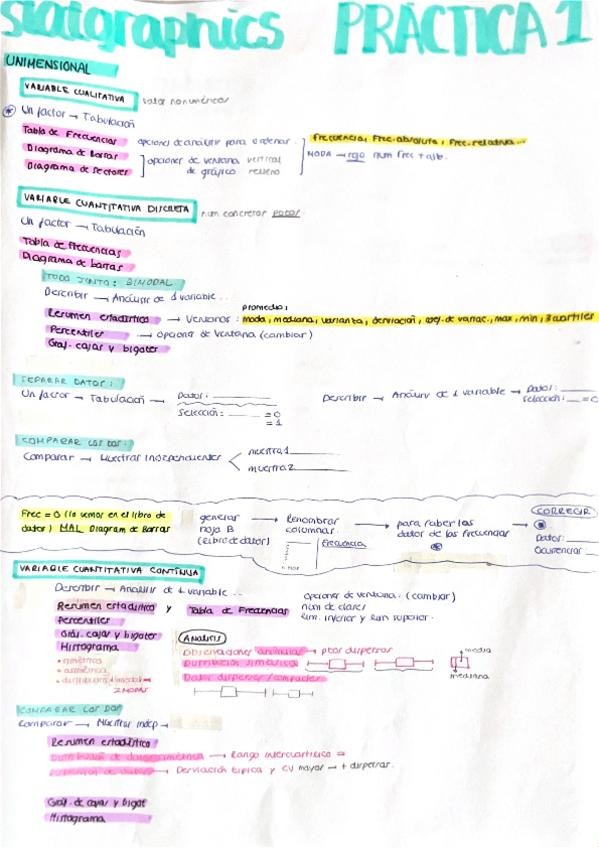 Statgraphics PRÁCTICA 1
UNIMENSIONAL
VARIABLE CUALITATIVA valor no numéricos
* Un factor → Tabulación
Tabla de Frecuencias opciones de análisis para ordenar. Frecuencias, Frec. absoluta, Frec. relativa...
Diagrama de Barras opciones de ventana vertical MODA → num Frec + alto.
Diagrama de Sectores de gráfico relleno
VARIABLE CUANTITATIVA DISCRETA num concretos pocos.
Un factor → Tabulación
Tabla de Frecuencias
Diagrama de barras
TODO JUNTO: BIMODAL
Describir → Análisis de 1 variable..
promedio,
Resumen estadístico → Ventanas: moda, mediana, varianza, desviación, coef. de variac., max, min, 3 cuartiles
Percentiles → Opciones de Ventana (cambiar)
Graf. cajas y bigotes
SEPARAR DATOS:
Un factor → Tabulación → Datos: Describir → Análisis de 1 variable → Datos:
Selección: = 0 Selección: = 0
= 1
COMPARAR LOS DOS:
Comparar → Muestras Independientes muestra 1
muestra 2
CORRECIR
Frec = 0 (lo vemos en el libro de generar → Renombrar → para saber las → *
datos) MAL Diagram de Barras hoja B columnas. datos de las frecuencias Datos:
(Libro de datos) Frecuencia * Ocurrencias
VARIABLE CUANTITATIVA CONTÍNUA
Describir → Análisis de 1 variable.. opciones de ventana. (cambiar)
Resumen estadístico y Tabla de Frecuencias num de clases
Percentiles lim. inferior y lim superior.
Gráf. cajas y bigotes ANÁLISIS
Histograma Observaciones anómalas → ptos dispersos media
• simétrica Distribución simétrica
• asimétrica Datos dispersos/compactos mediana
• distribución bimodal →
2 MODAS
COMPARAR LOS DOS
Comparar → Muestras indep →
Resumen estadístico
Distribución de datos simétrica → Rango intercuartílico =
Dispersión de datos → Desviación típica y CV mayor → + dispersos.
Graf. de cajas y bigot
Histograma